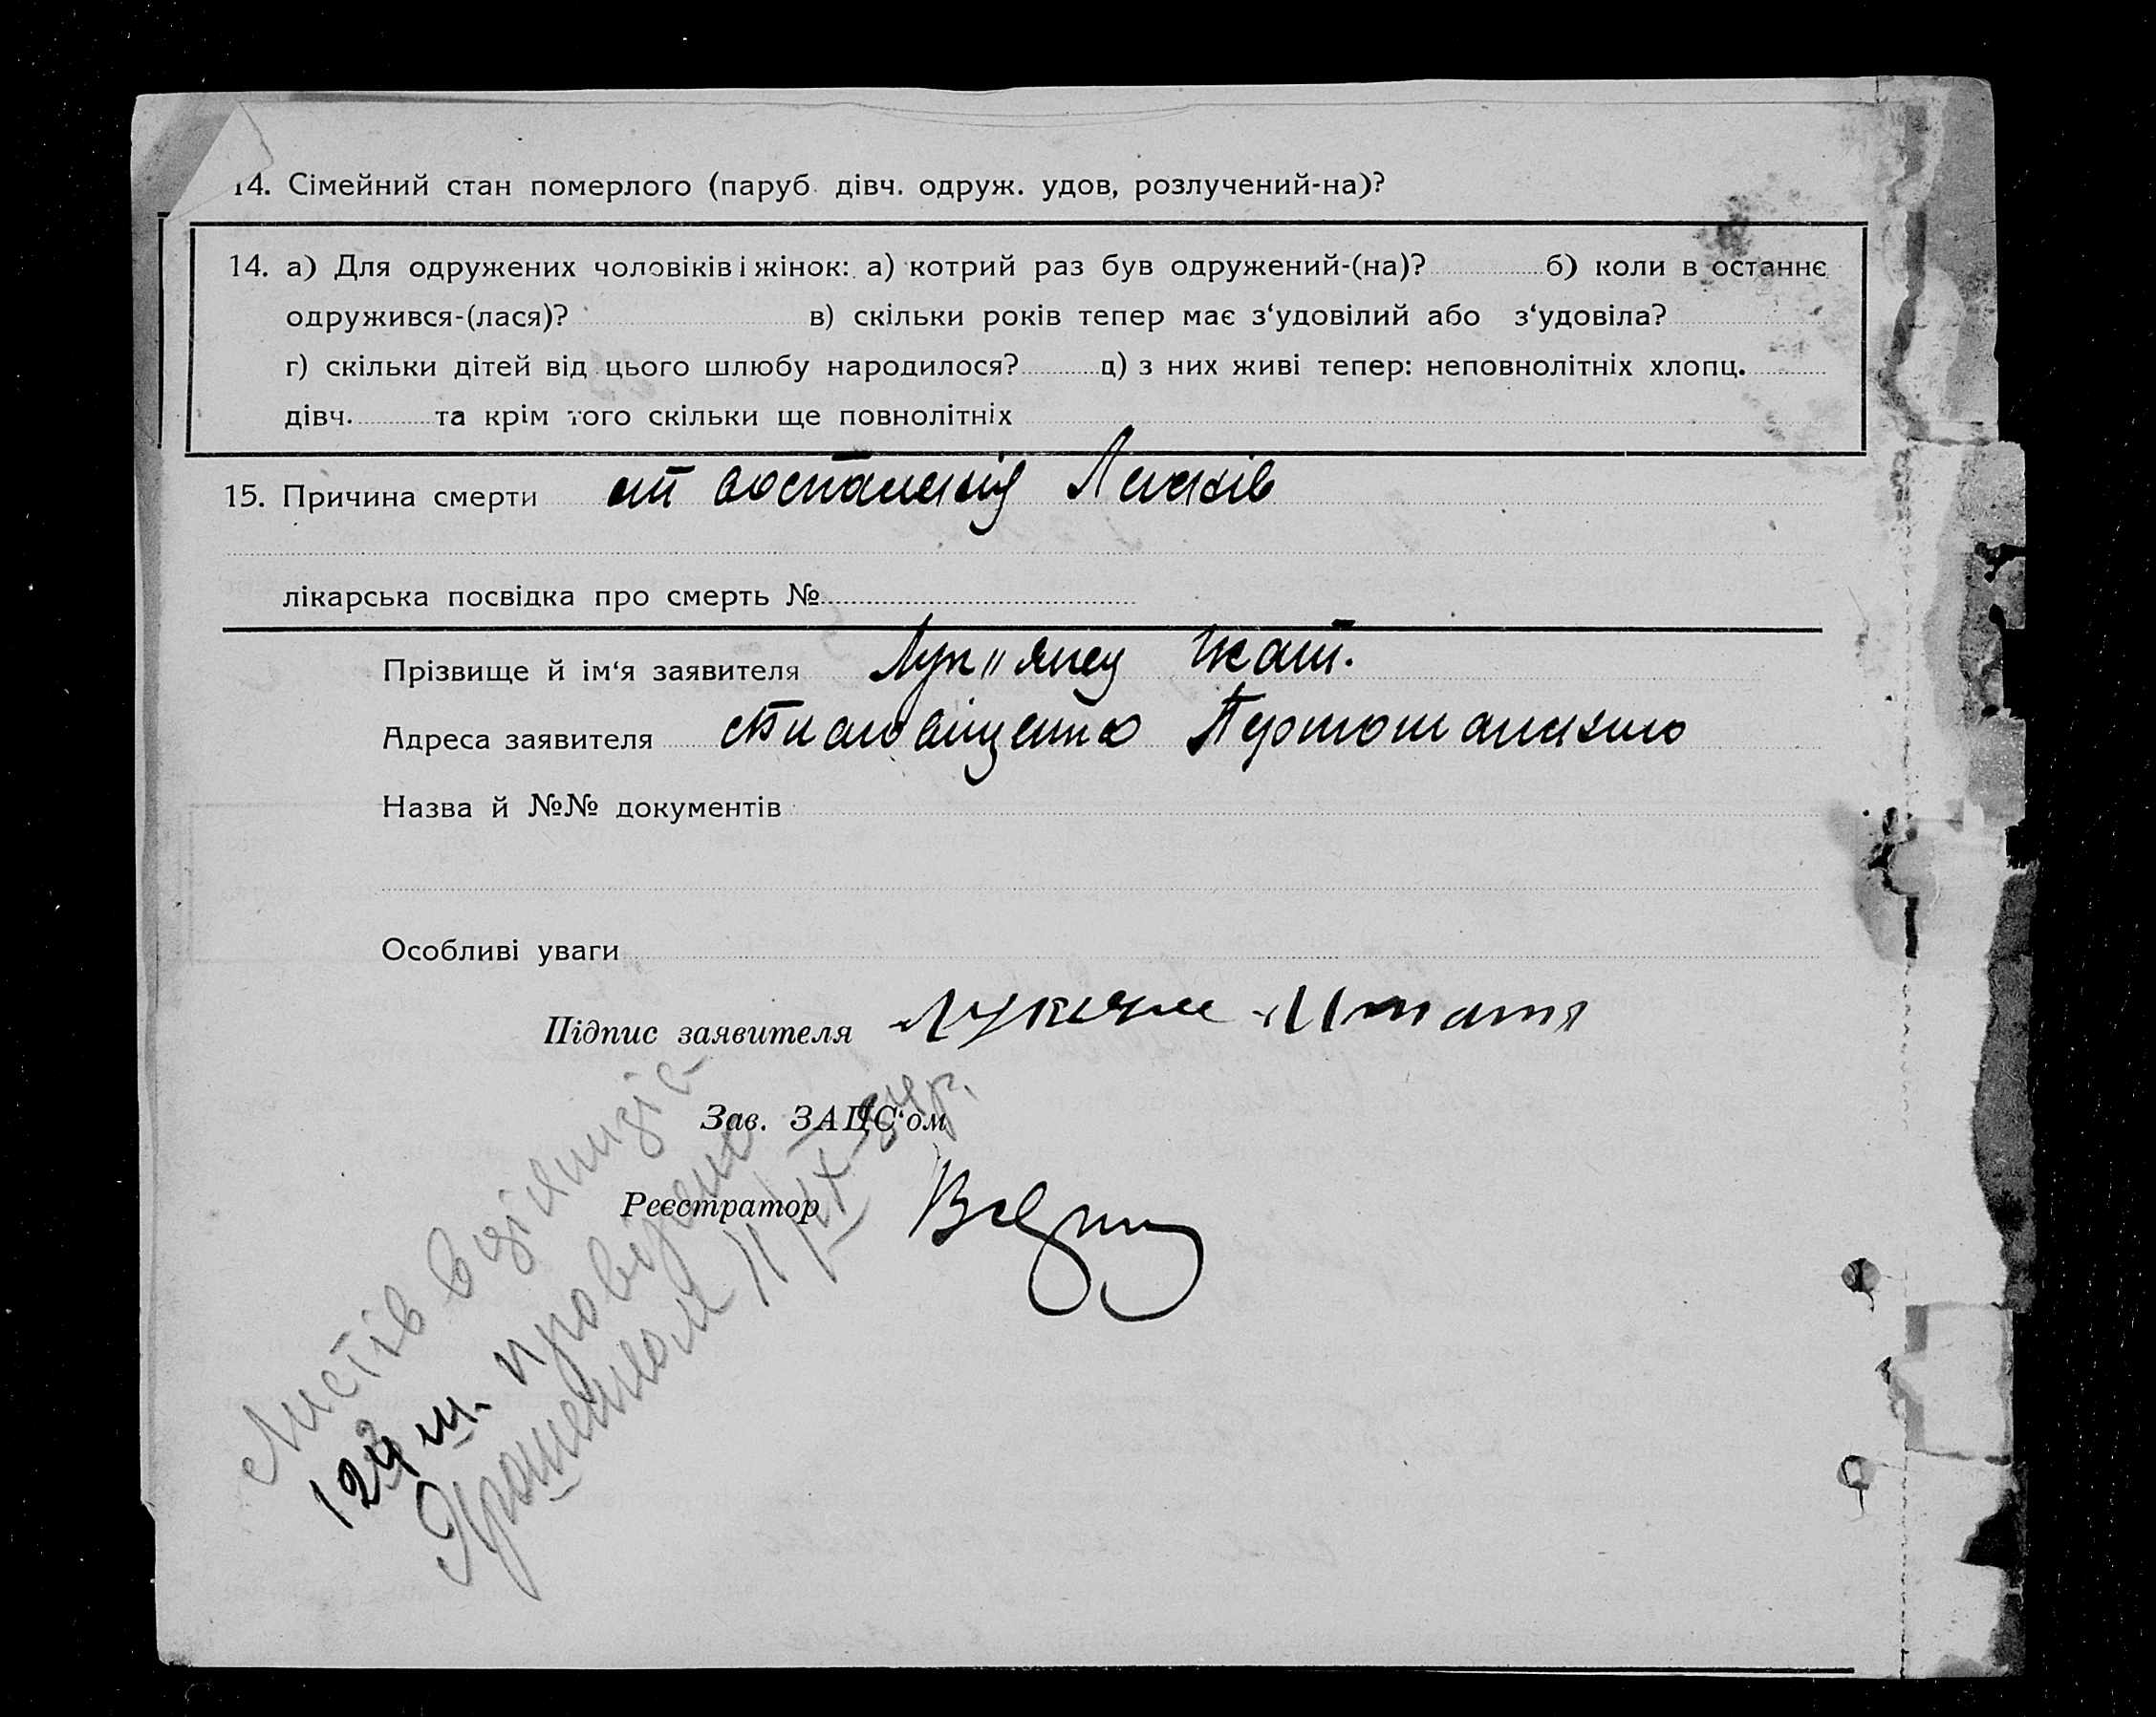 14. Сімейний стан померлого (паруб. дівч. одруж. удов, розлучений-на)?
14. а) Для одружених чоловіків і жінок: а) котрий раз був одружений-(на)? б) коли в останнє
одружився-(лася)? в) скільки років тепер має з‘удовілий або з‘удовіла?
г) скільки дітей від цього шлюбу народилося? д) з них живі тепер: неповнолітніх хлопц.
дівч. та крім того скільки ще повнолітніх
15. Причина смерти от воспаления
лікарська посвідка про смерть №
Прізвище й ім‘я заявителя
Адреса заявителя
Назва й №№ документів
Особливі уваги
Підпис заявителя
Зав. ЗАЦС‘ом
Реєстратор
Листів в цій книзі є
124 ш. провірено
11/IX-34р.